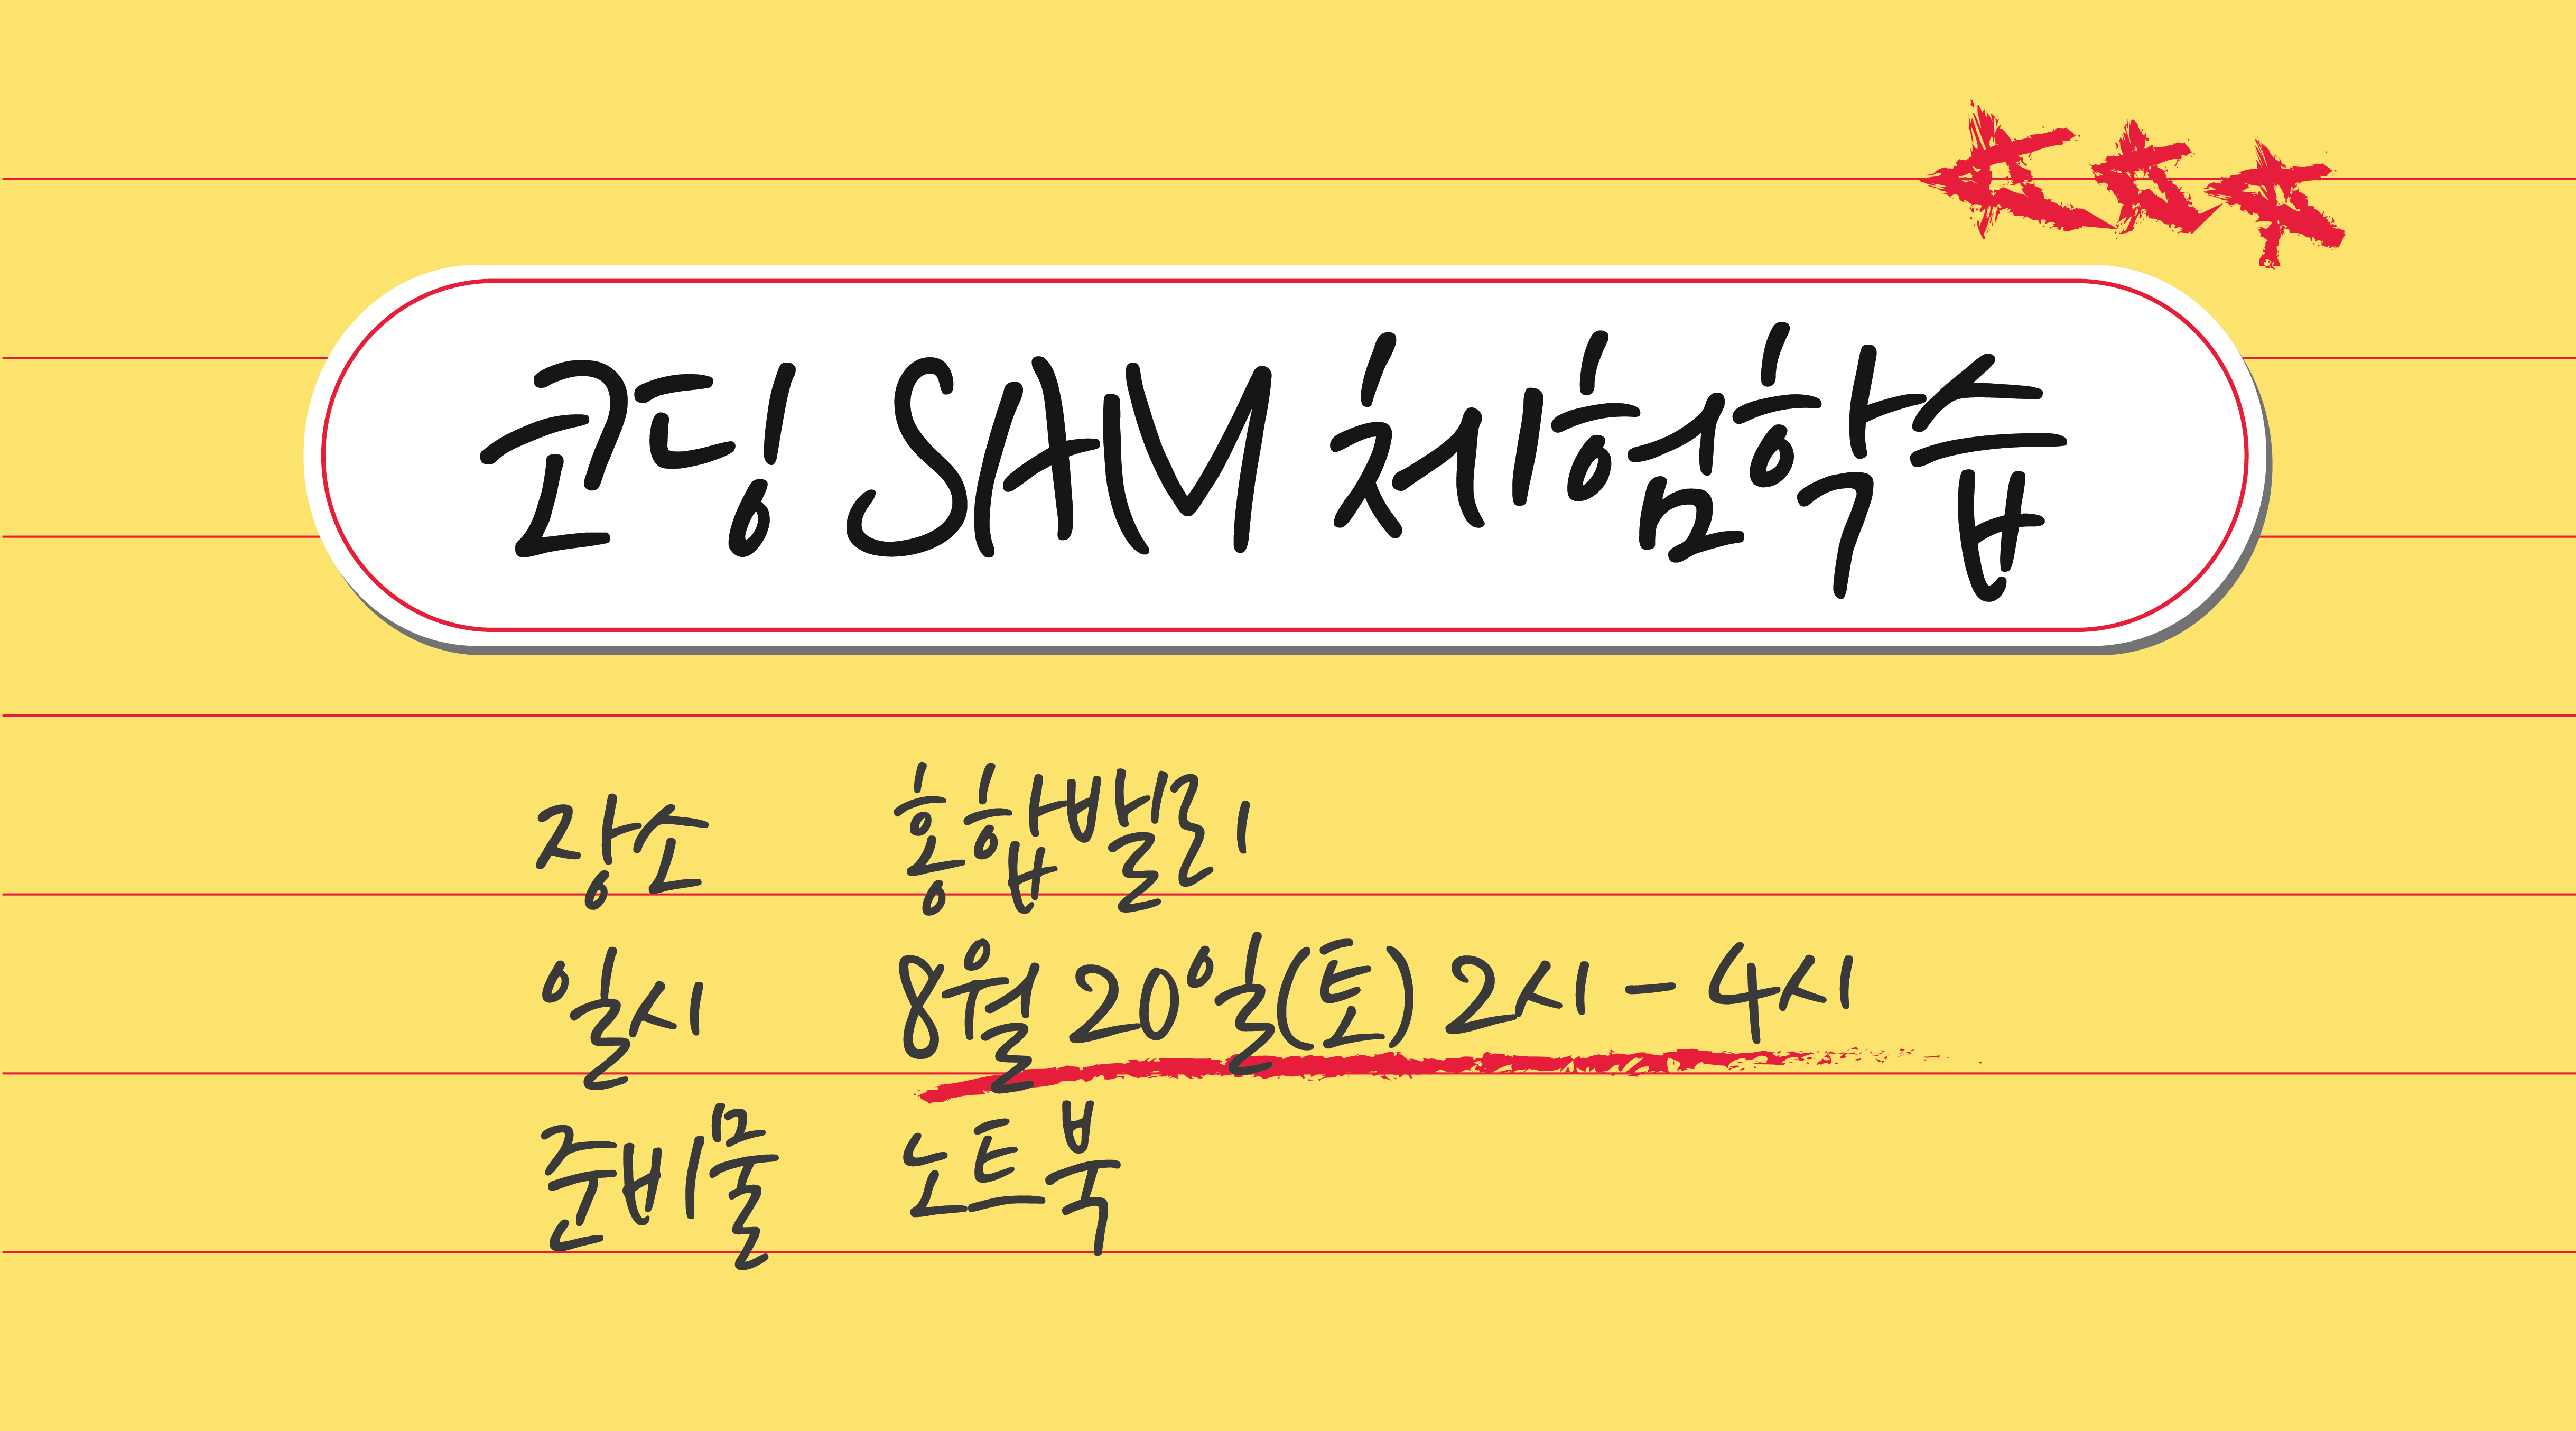 코딩 SAM 체험학습
장소 홍합밸리
일시 8월 20일(토) 2시 - 4시
준비물 노트북